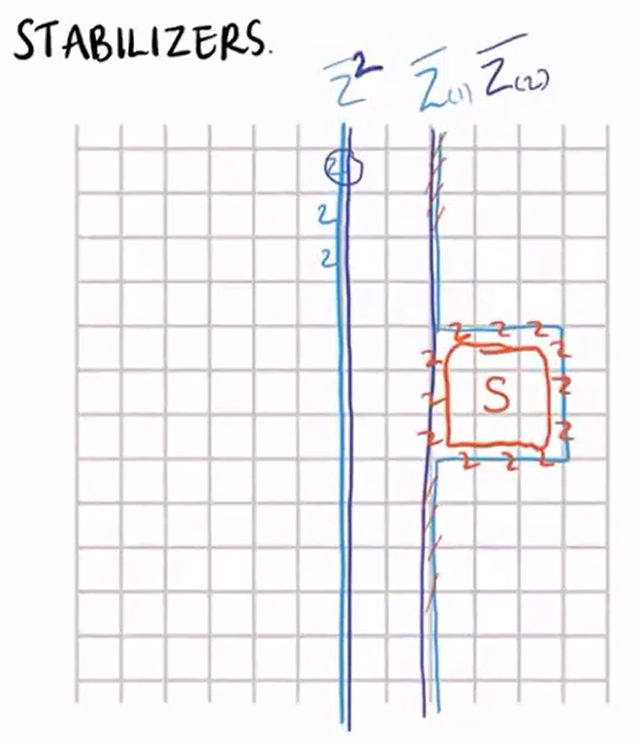 STABILIZERS.
Z̅² Z̅₍₁₎ Z̅₍₂₎
Z
Z
Z
Z Z Z
Z Z
Z S Z
Z Z
Z Z Z